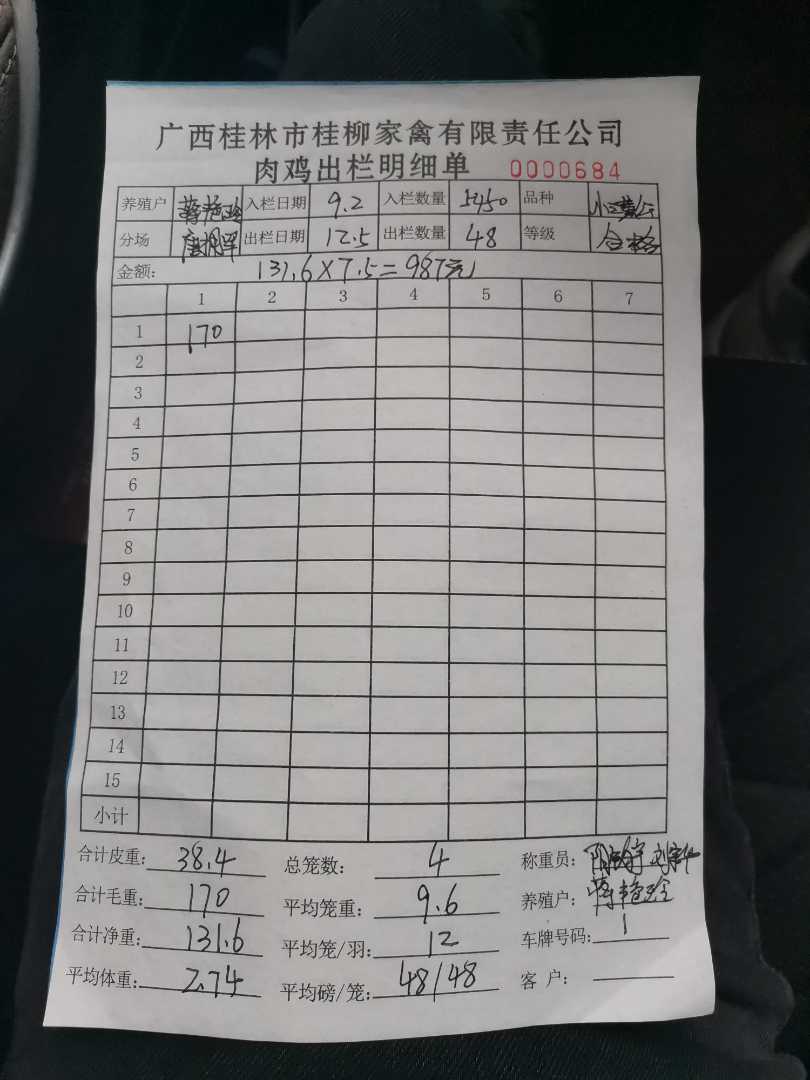 广西桂林市桂柳家禽有限责任公司
肉鸡出栏明细单 0000684
养殖户 蒋艳玲 入栏日期 9.2 入栏数量 品种
分场 出栏日期 12.5 出栏数量 48 等级 合格
金额: 131.6×7.5=987元
1 2 3 4 5 6 7
1 170
2
3
4
5
6
7
8
9
10
11
12
13
14
15
小计
合计皮重: 38.4 总笼数: 4 称重员:
合计毛重: 170 平均笼重: 9.6 养殖户: 蒋艳玲
合计净重: 131.6 平均笼/羽: 12 车牌号码: 1
平均体重: 2.74 平均磅/笼: 48/48 客 户: